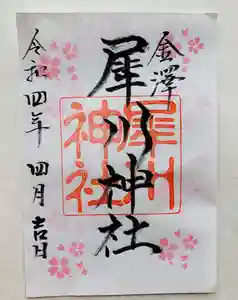 金澤
犀川神社
令和四年 四月吉日
犀川神社